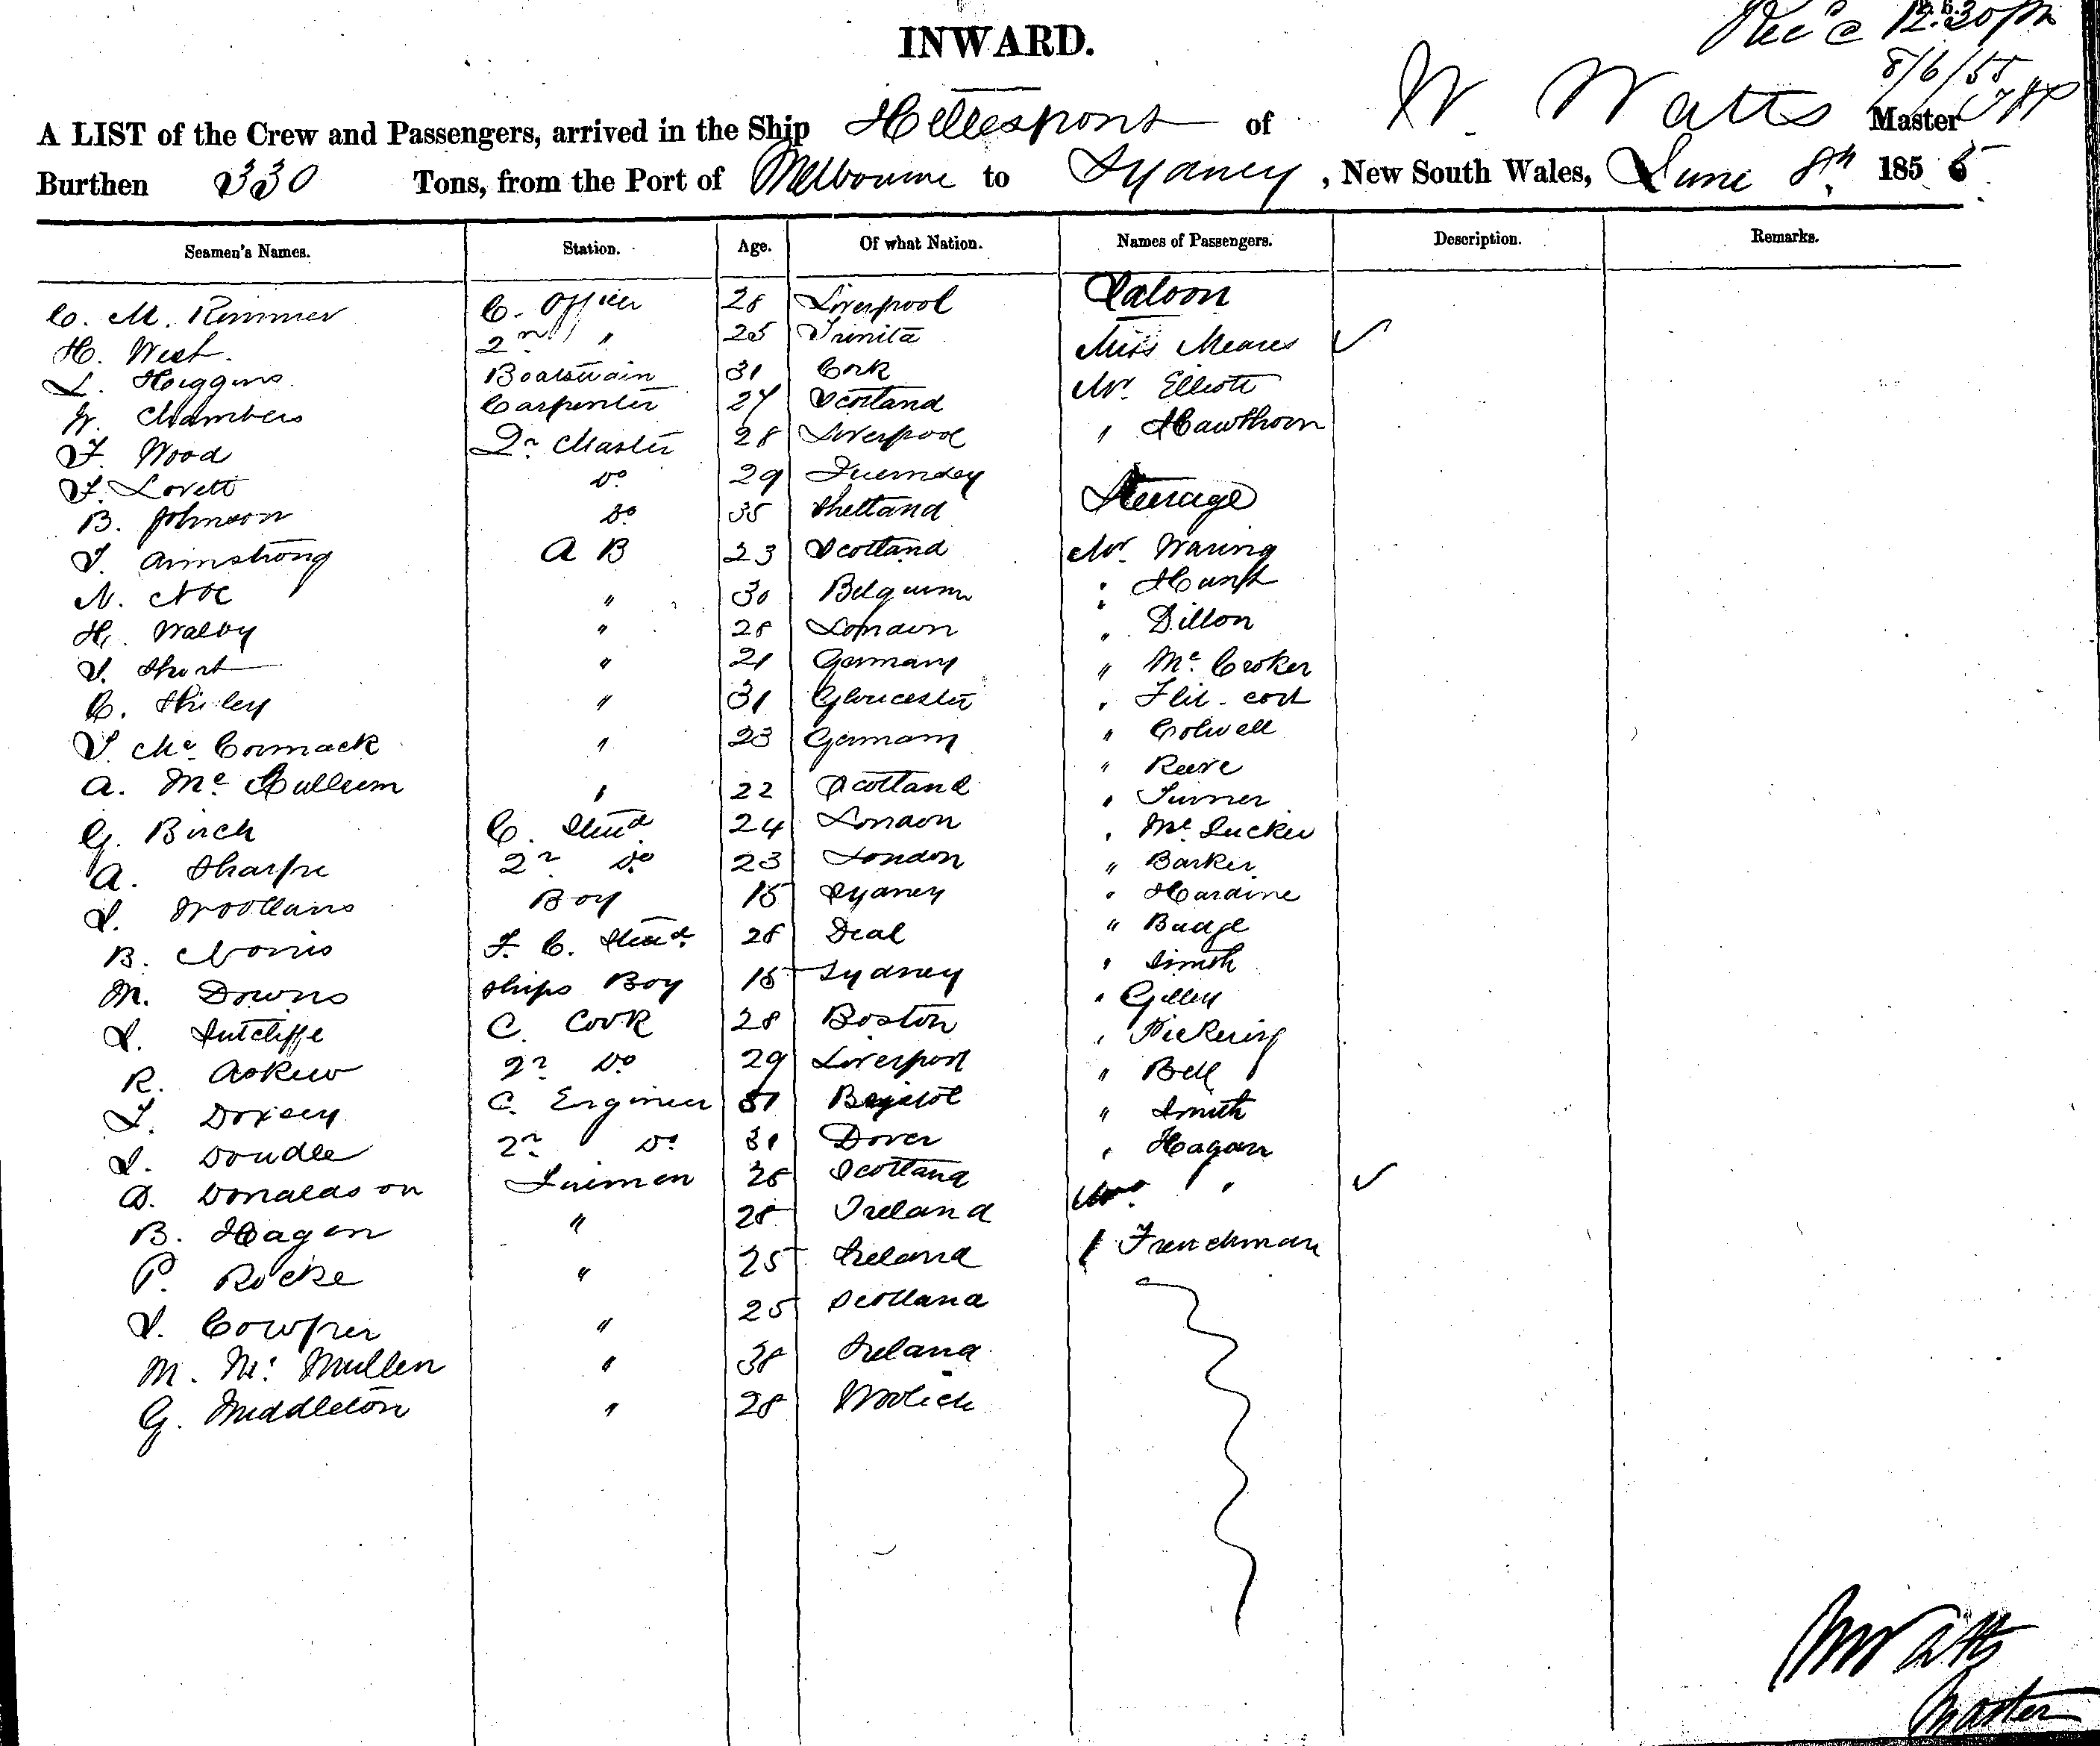 INWARD.
Rec'd 12.30 pm
8/6/55
A LIST of the Crew and Passengers, arrived in the Ship Hellespont of W. Watts Master
Burthen 330 Tons, from the Port of Melbourne to Sydney, New South Wales, June 8th 1855.
Seamen's Names. Station. Age. Of what Nation. Names of Passengers. Description. Remarks.
C. M. Rimmer C. Officer 28 Liverpool Saloon
H. West. 2nd " 25 Trinita Miss Meares ✓
L. Higgins Boatswain 31 Cork Mr. Elliott
W. Chambers Carpenter 27 Scotland " Hawthorn
F. Wood Qr Master 28 Liverpool
F. Lovett Do 29 Guernsey Steerage
B. Johnson Do 35 Shetland
J. Armstrong A B 23 Scotland Mr Waring
N. Noe " 30 Belguim " Hunt
H. Walby " 28 London " Dillon
J. Short " 21 Germany " Mc Croker
C. Shiley " 31 Gloucester "
J. Mc Cormack " 23 Germany " Colwell
" Reeve
A. Mc Cullum " 22 Scotland " Turner
G. Birch C. Stew'd 24 London " Mc Tucker
A. Sharpe 2n Do 23 London " Barker
J. Woollans Boy 15 Sydney " Hardine
B. Norris F. C. Stewd. 28 Deal " Budge
" Smith
M. Downs Ships Boy 15 Sydney " Gilley
J. Sutcliffe C. Cook 28 Boston " Pickering
R. Askew 2n Do 29 Liverpool " Bell
T. Dorsey C. Engineer 31 Bristol " Smith
J. Doudle 2n Do 31 Dover " Hagan
D. Donaldson Firemen 28 Scotland Mrs. " ✓
B. Hagen " 28 Ireland 1 Frenchman
P. Rocke " 25 Ireland
J. Cowper " 25 Scotland
M. Mc Mullen " 38 Ireland
G. Middleton " 28 Woolich
W Watts
Master